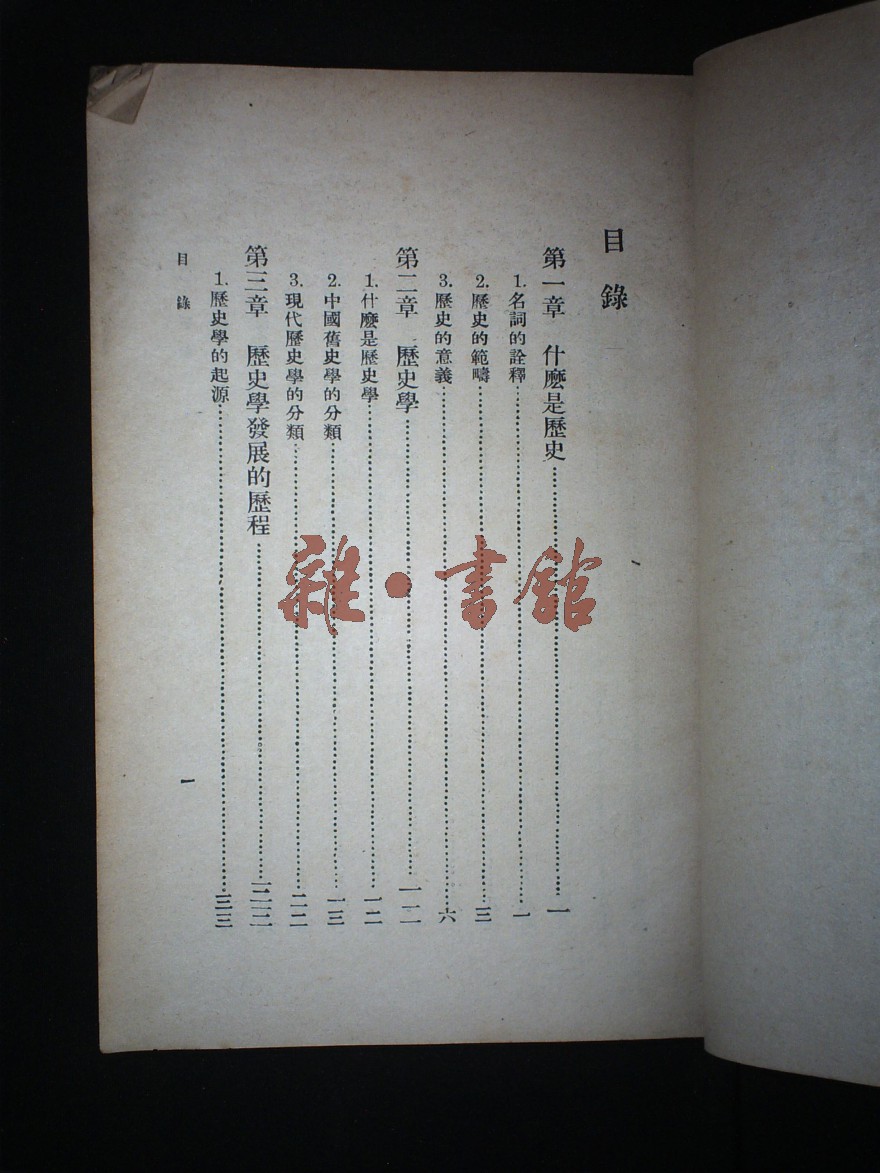 目錄
第一章　什麽是歷史……一
1. 名詞的詮釋……一
2. 歷史的範疇……三
3. 歷史的意義……六
第二章　歷史學……一二
1. 什麽是歷史學……一二
2. 中國舊史學的分類……一三
3. 現代歷史學的分類……二二
第三章　歷史學發展的歷程……三三
1. 歷史學的起源……三三
目錄
一
雜・書館